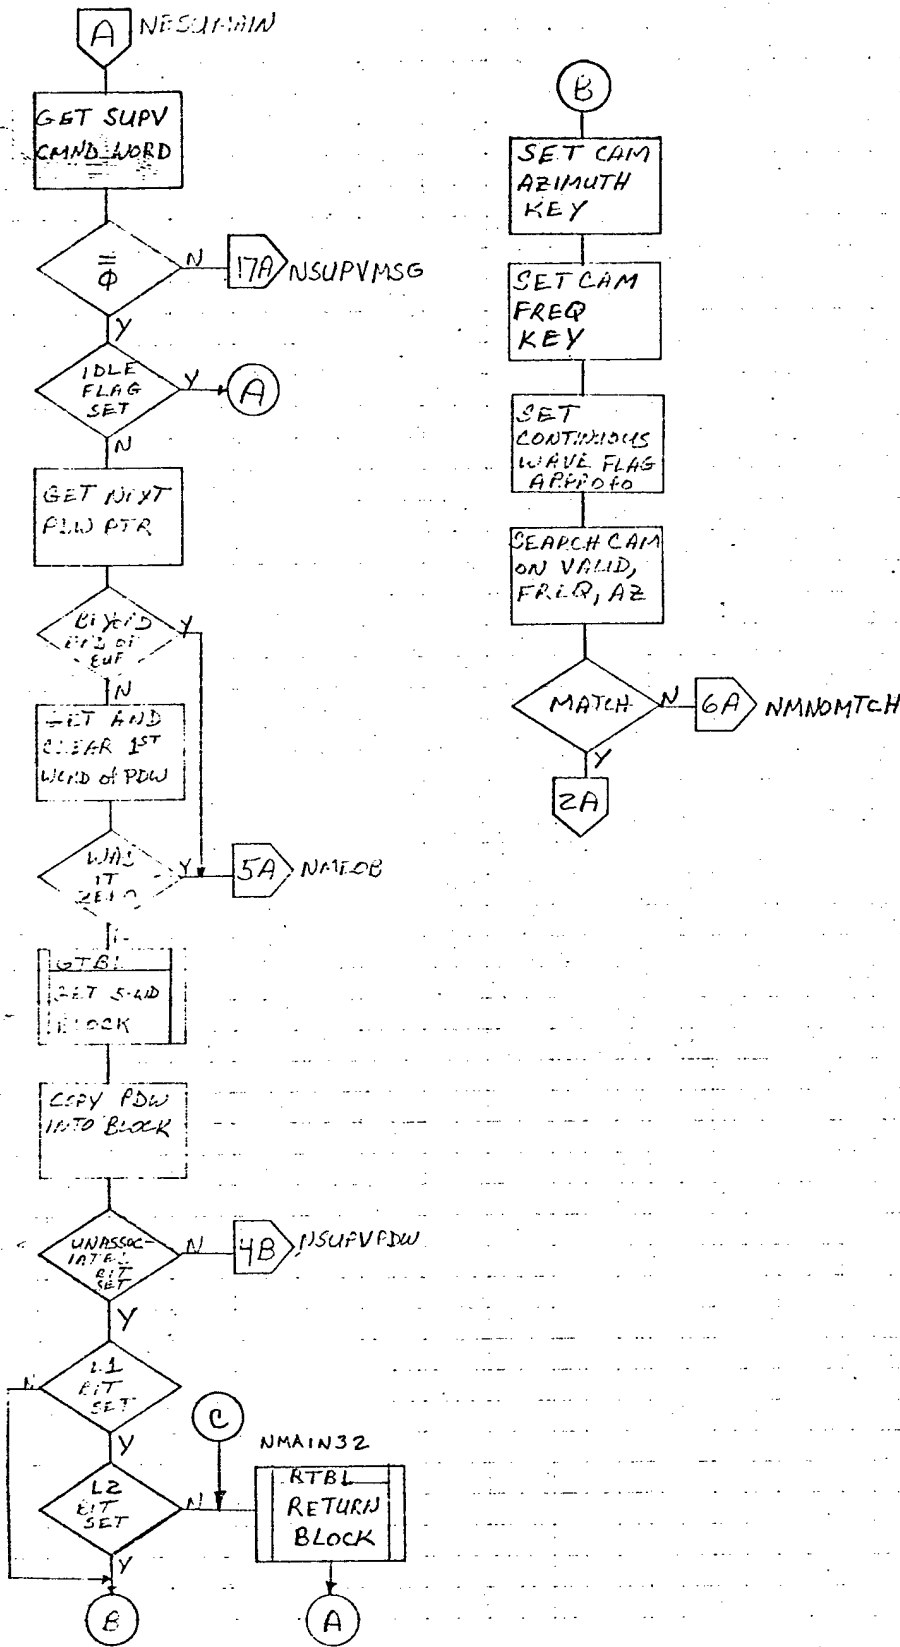 A NESUMAIN
GET SUPV
CMND WORD
=
Φ
N
17A NSUPVMSG
Y
IDLE
FLAG
SET
Y
A
N
GET NEXT
PTR
Y
N
GET AND
CLEAR 1ST
WORD of PDW
WAS
IT
ZERO
Y
5A NMEOB
GTBL
GET 5-WD
BLOCK
COPY PDW
INTO BLOCK
UNASSOC-
IATED
BIT
SET
N
4B NSUPVPDW
Y
L1
BIT
SET
N
Y
C
L2
BIT
SET
N
NMAIN32
RTBL
RETURN
BLOCK
Y
B
A
B
SET CAM
AZIMUTH
KEY
SET CAM
FREQ
KEY
SET
CONTINUOUS
WAVE FLAG
SEARCH CAM
ON VALID,
FREQ, AZ
MATCH
N
6A NMNOMTCH
Y
2A